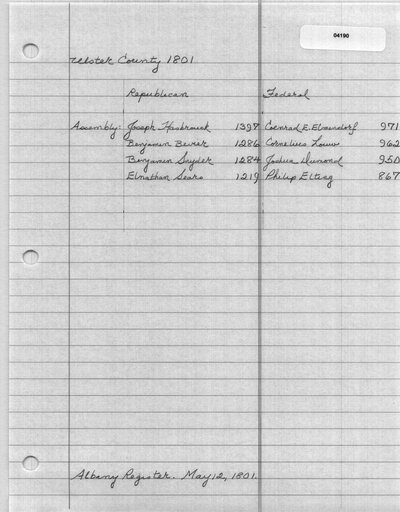 04190
Ulster County 1801
Republican Federal
Assembly: Joseph Hasbrouck 1397 Coenrad E. Elmendorf 971
Benjamin Bevier 1286 Cornelius Louw 962
Benjamin Snyder 1284 Joshua Dumond 950
Elnathan Sears 1219 Philip Elting 867
Albany Register. May 12, 1801.